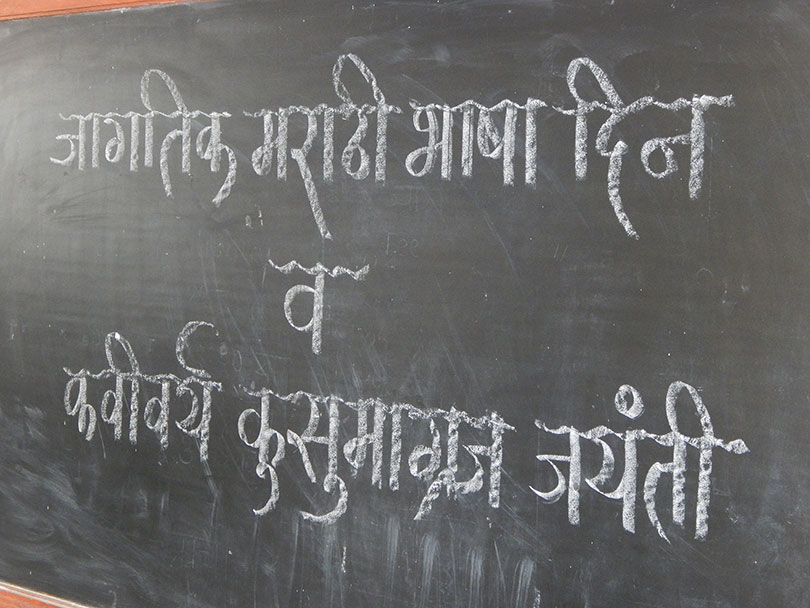 जागतिक मराठी भाषा दिन
व
कवीवर्य कुसुमाग्रज जयंती